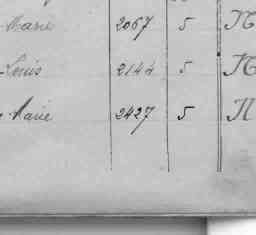 Marie 2067 5 П
Louis 2144 5 П
Marie 2427 5 П